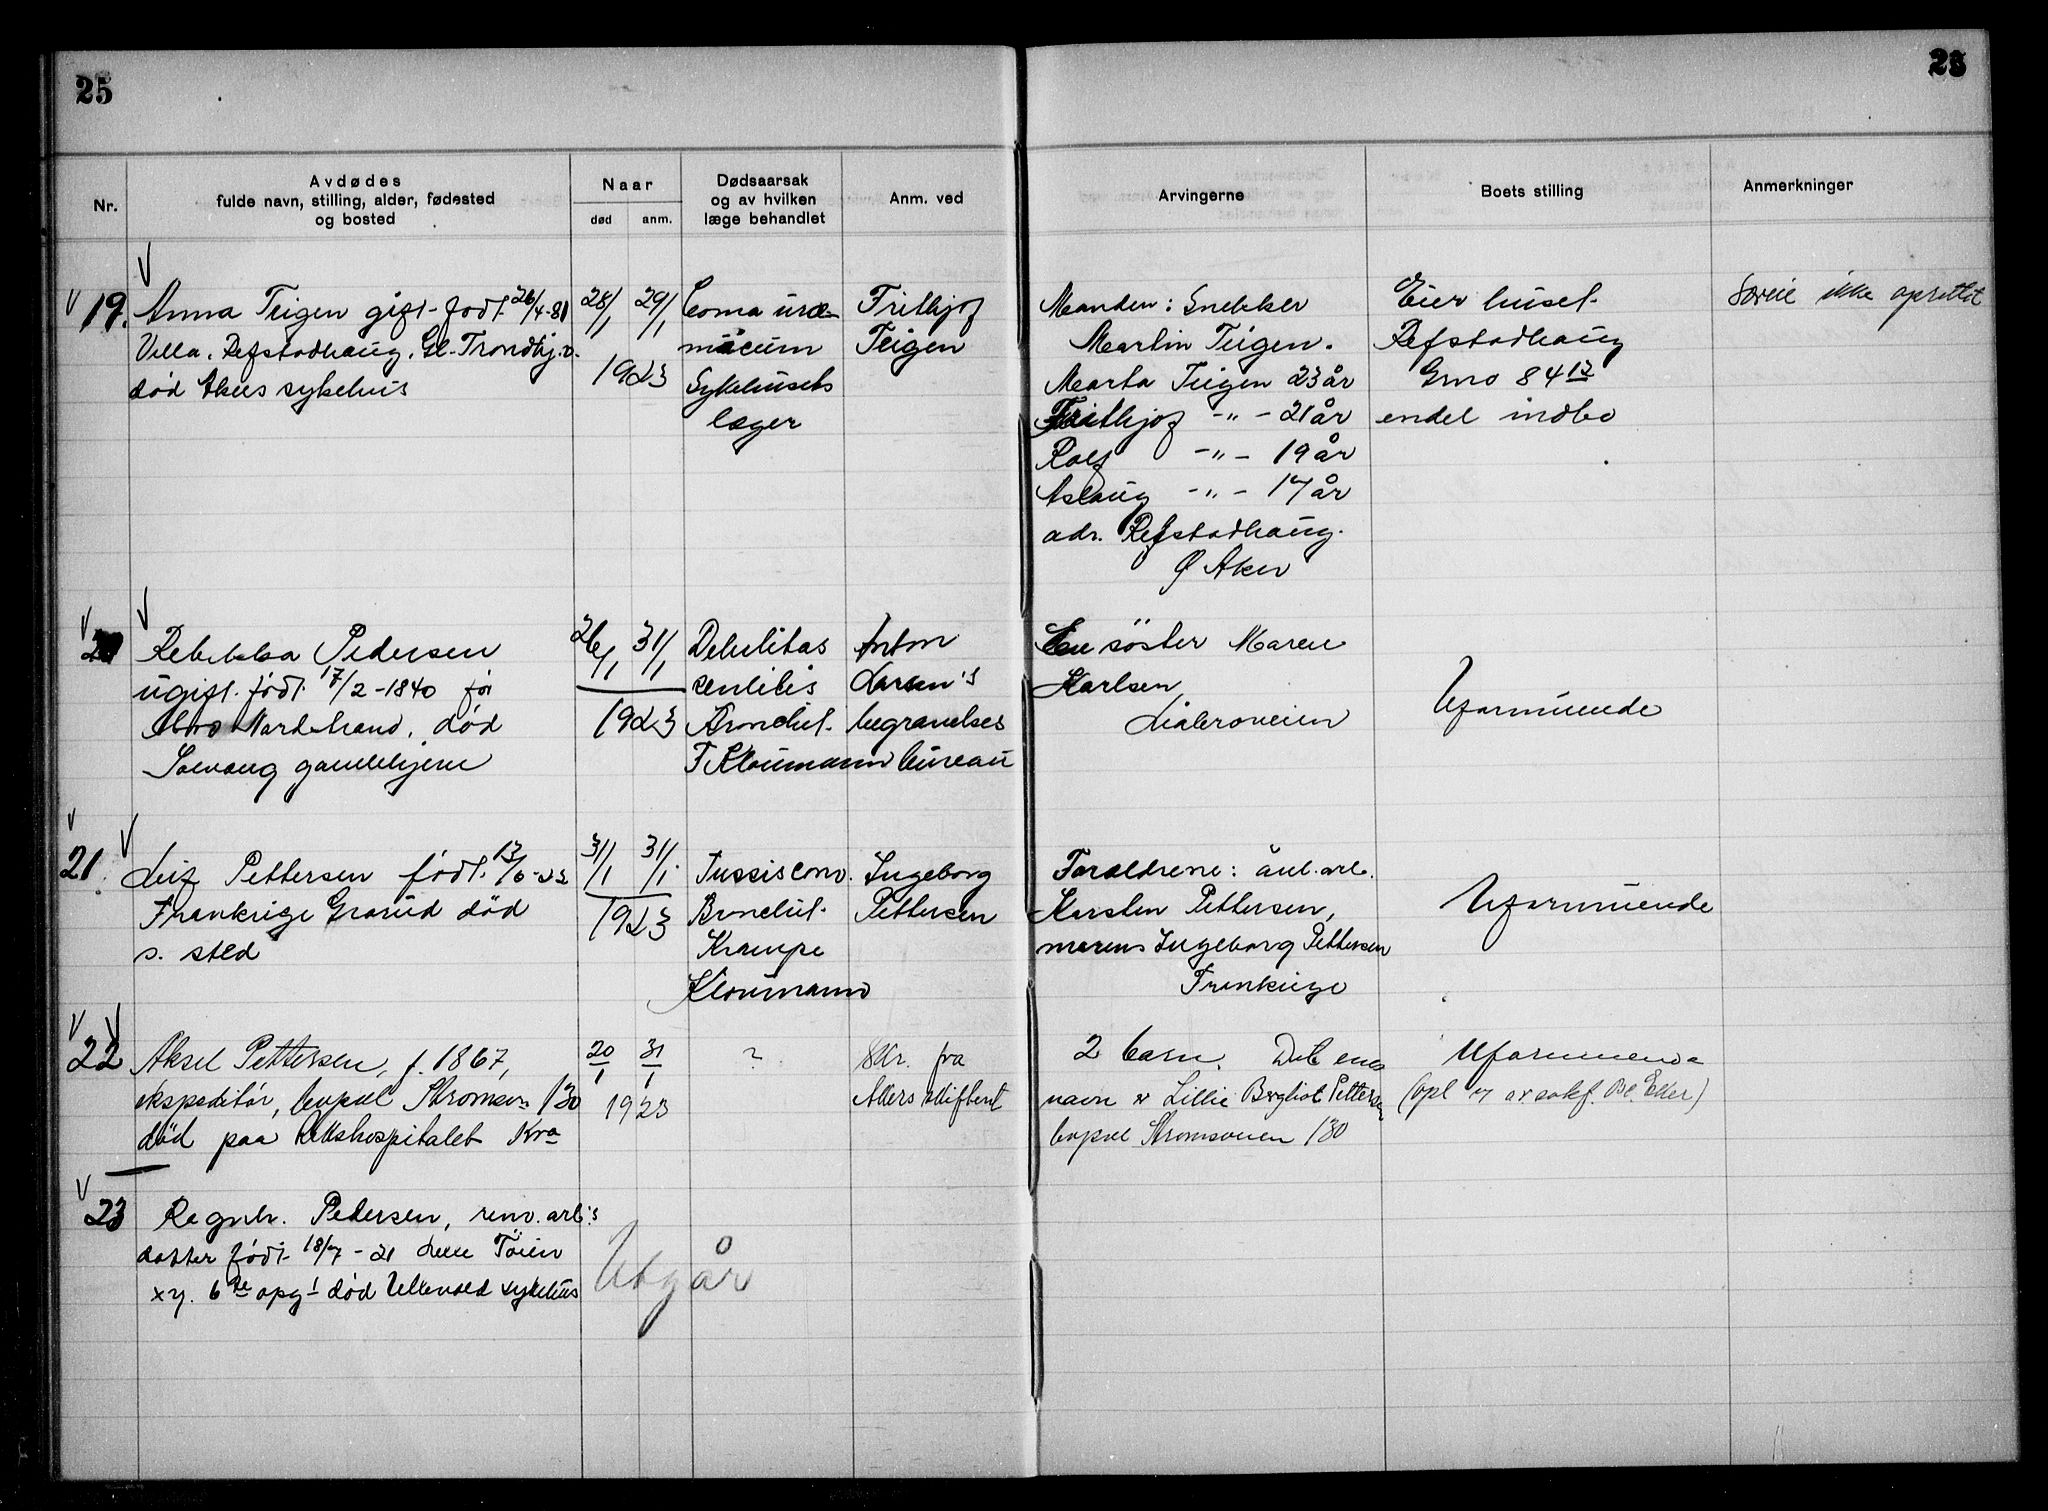 25
25
Nr.
Avdødes
fulde navn, stilling, alder, fødested
og bosted
Naar
død
anm.
Dødsaarsak
og av hvilken
læge behandlet
Anm. ved
Arvingerne
Boets stilling
Anmerkninger
19. Anna Teigen gift. født 26/4-81
Villa. Refstadhaug. Gl. Trondhj.v.
død Akers sykehus
28/1 29/1
1923
Coma uræ-
micum
Sykehusets
læger
Frithjof
Teigen
Manden: Snekker
Martin Teigen.
Marta Teigen 23 år
Frithjof -"- 21 år
Rolf -"- 19 år
Aslaug -"- 17 år
adr. Refstadhaug.
Ø Aker
Eier huset
Refstadhaug
Grno 84 12
endel indbo
Særeie ikke oprettet
20 Rebekka Pedersen
ugift. født 17/2-1840
Nordstrand, død
Solvang gamlehjem
26/1 31/1
1923
Debilitas
senilis
Bronchit.
F Kloumann
Anton
Larsen's
begravelses
bureau
En søster Maren
Karlsen
Liabroveien
Uformuende
21. Leif Pettersen født 13/6-22
Frankrige Grorud død
s. sted
31/1 31/1
1923
Tussis conv.
Bronchit.
Krampe
Kloumann
Ingeborg
Pettersen
Forældrene: anl. arb.
Karsten Pettersen,
morens Ingeborg Pettersen
Frankrige
Uformuende
22 Aksel Pettersen, f. 1867,
ekspeditør, bopæl Strømsv. 130
død paa Rikshospitalet Kra
20/1 31/1
1923
?
Skr. fra
Akers skifteret
2 barn. Det enes
navn er Lillie Bergliot Pettersen
bopæl Strømsveien 130
Uformuende
(opl av sakf. Bl. Eker)
23 Ragnh. Pedersen, renv. arb's
datter født 18/7-21 Tøien
xy. 6 te opg 1 død Ullevold sykehus
Utgår